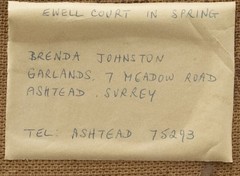 EWELL COURT IN SPRING
BRENDA JOHNSTON
GARLANDS. 7 MEADOW ROAD
ASHTEAD. SURREY
TEL: ASHTEAD 75293